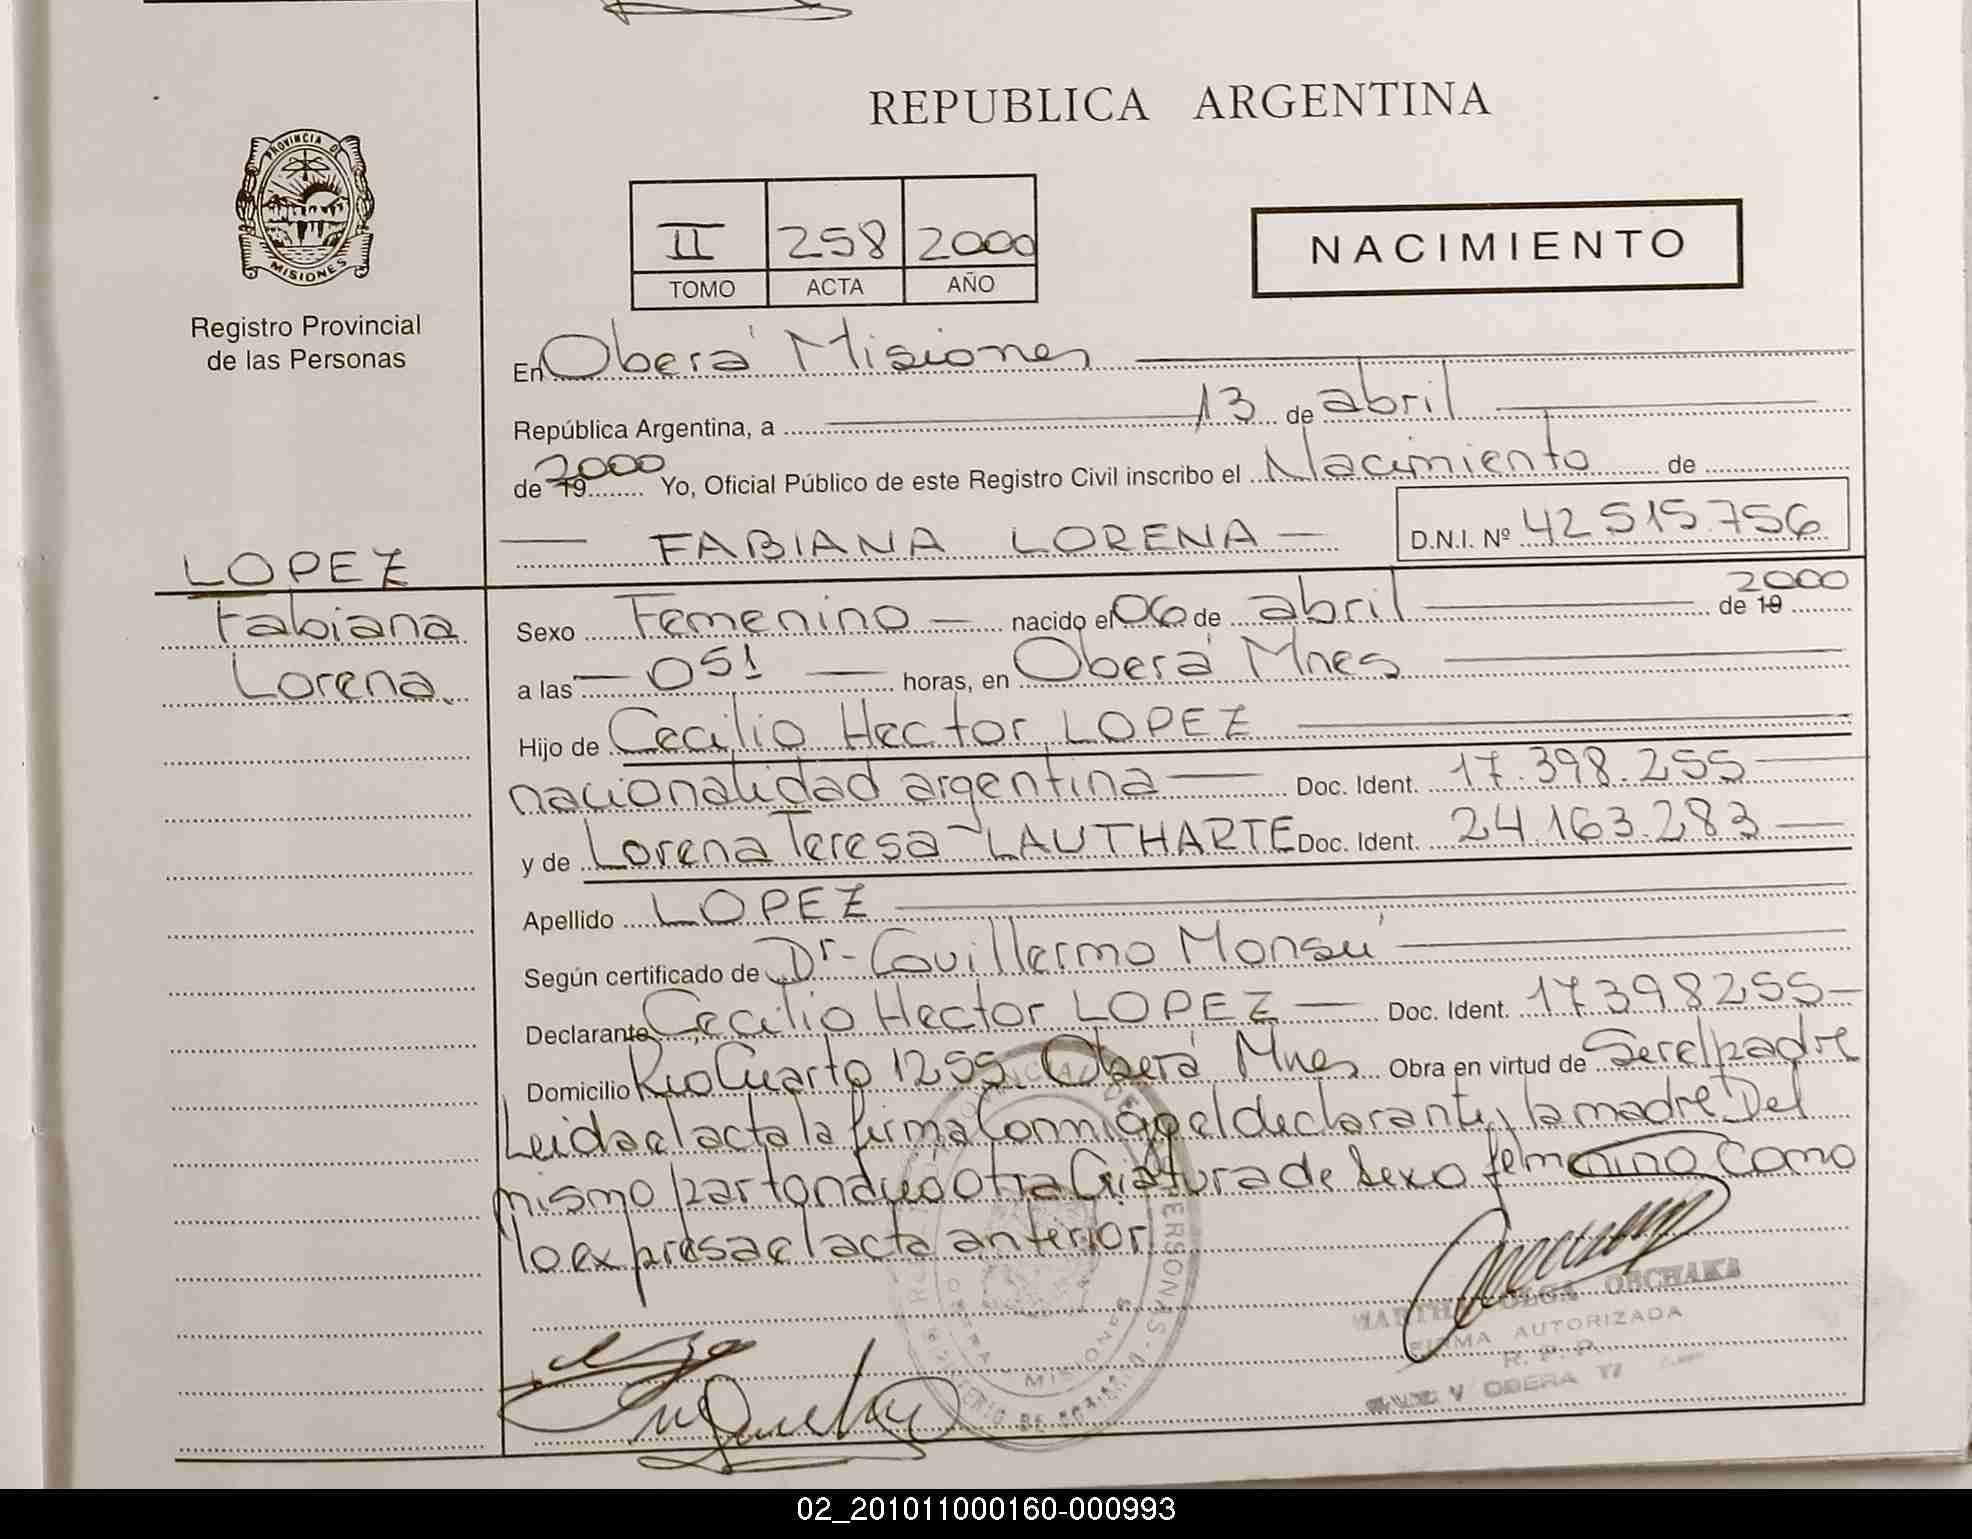 REPUBLICA ARGENTINA
PROVINCIA DE
MISIONES
Registro Provincial
de las Personas
II 258 2000
TOMO ACTA AÑO
NACIMIENTO
En Oberá Misiones
República Argentina, a 13 de abril
de 19 2000 Yo, Oficial Público de este Registro Civil inscribo el Nacimiento de
FABIANA LORENA D.N.I. Nº 42 515.756
LOPEZ
Fabiana
Lorena
Sexo Femenino nacido el 06 de abril de 19 2000
a las 051 horas, en Oberá Mnes
Hijo de Cecilio Hector LOPEZ
nacionalidad argentina Doc. Ident. 17.398.255
y de Lorena Teresa LAUTHARTE Doc. Ident. 24.163.283
Apellido LOPEZ
Según certificado de Dr. Guillermo Monsú
Declarante Cecilio Hector LOPEZ Doc. Ident. 17398255
Domicilio Rio Cuarto 1255. Oberá Mnes Obra en virtud de Ser el padre
Leida el acta la firma Conmigo el declarante, la madre Del
mismo parto nacio otra Criatura de Sexo femenino Como
lo expresa el acta anterior
MARTHA OLGA ORCHAKA
FIRMA AUTORIZADA
R. P. P.
OBERA
PERSONAS
MISIONES
02_201011000160-000993